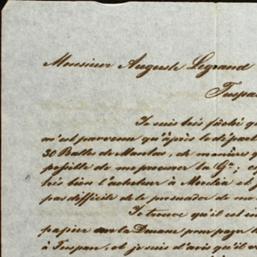 Monsieur Auguste Legrand
Tuspan
Je suis très fâché qu
m'est parvenu qu'après le départ
30 Balles de Mantas, de manière q
possible de me procurer la
très bien l'acheteur à
pas difficile de le persuader de
Je trouve qu'il est
papier sur la Douane pour payer
à Tuspan, et je suis d'avis qu'il